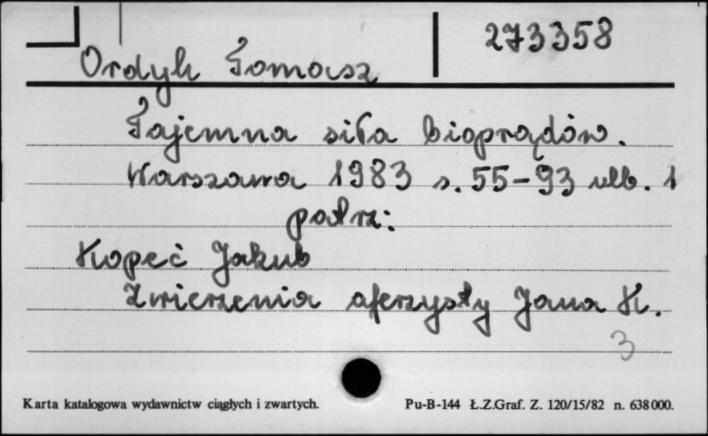 273358
Ordyk Tomasz
Tajemna siła bioprądów.
Warszawa 1983 s. 55-93 nlb. 1
patrz:
Kopeć Jakub
Zwierzenia aferzysty Jana K.
3
Karta katalogowa wydawnictw ciągłych i zwartych.
Pu-B-144 Ł.Z.Graf. Z. 120/15/82 n. 638000.